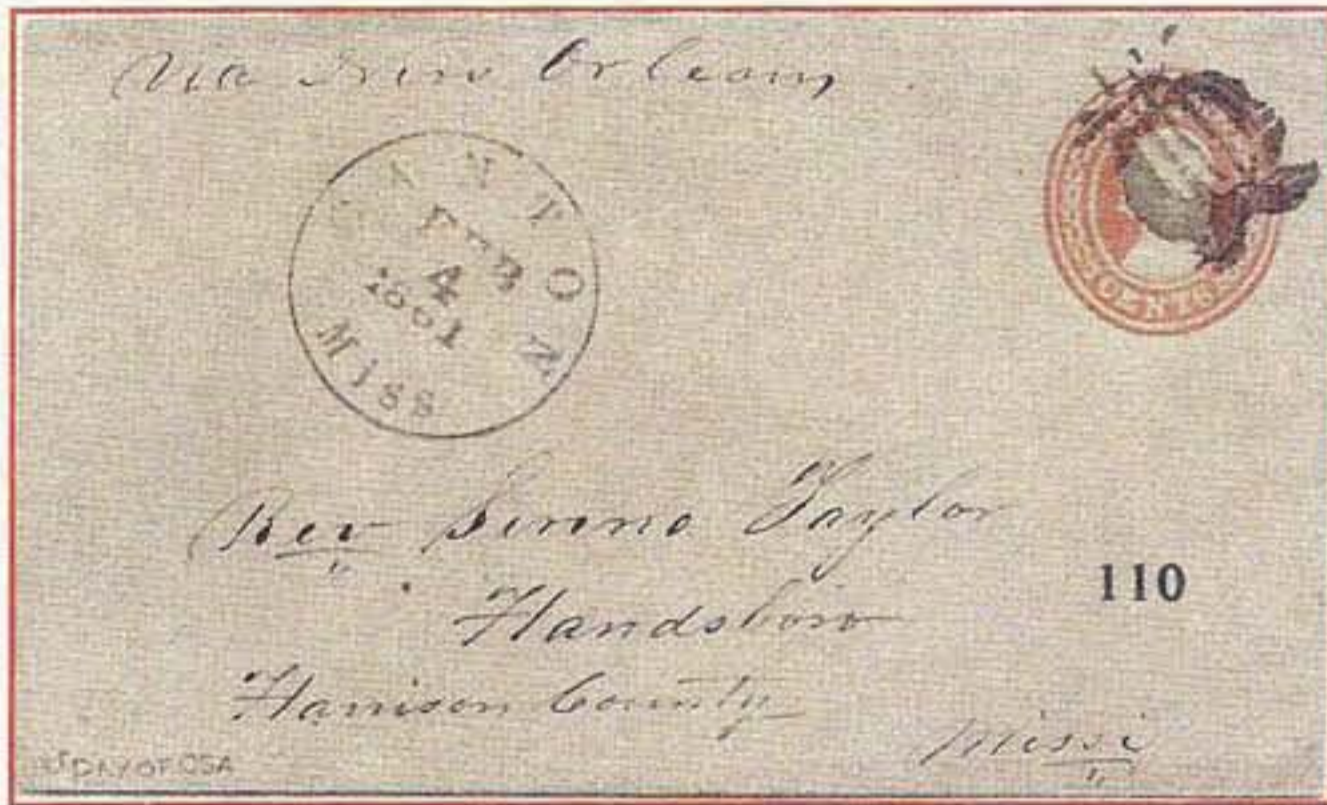 Via New Orleans
CANTON
FEB
4
1861
MISS
CENTS
Rev Taylor
110
Handsboro
Harrison County
Missi
1st DAY OF CSA